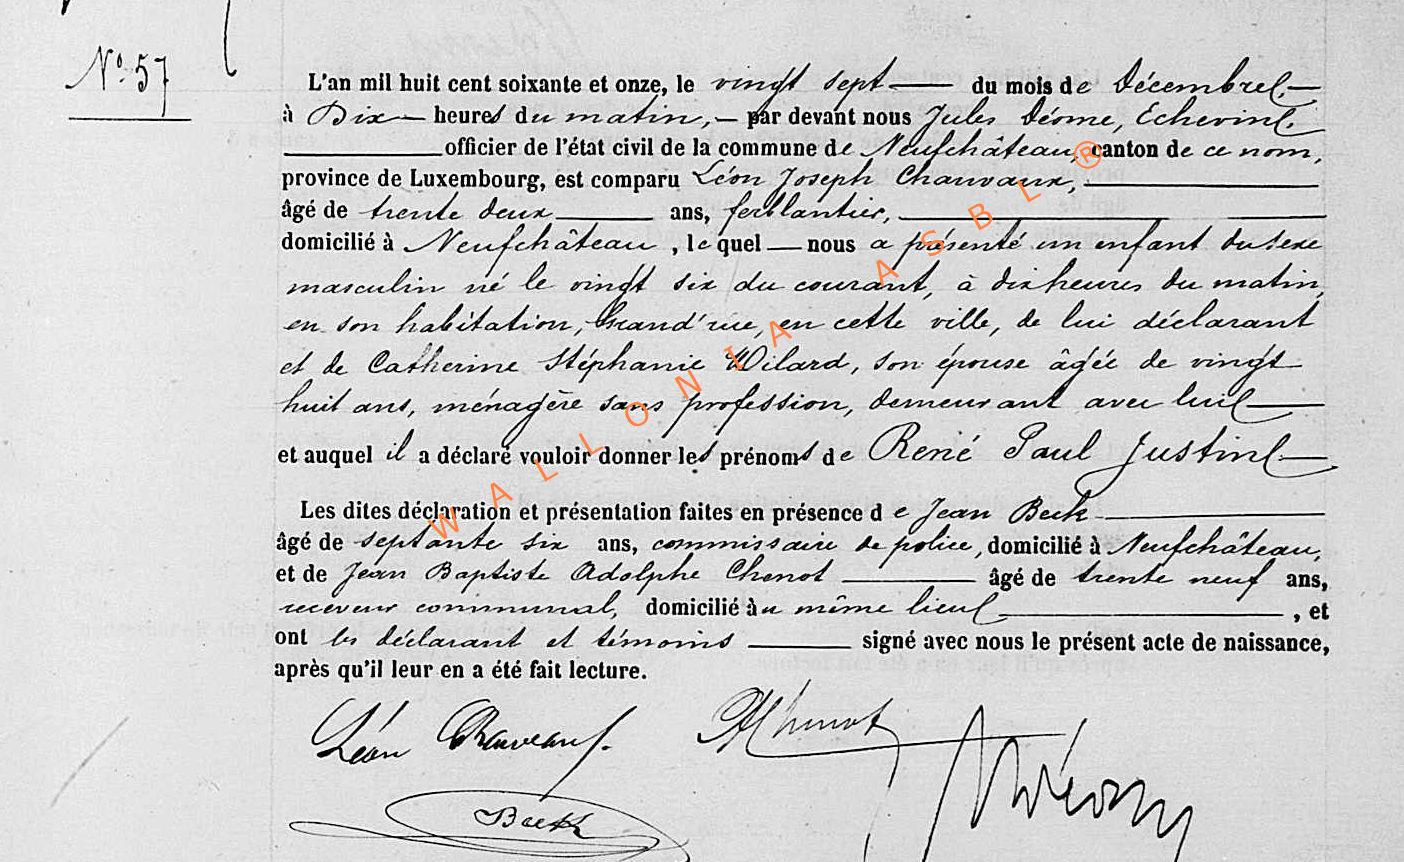 N° 57
L'an mil huit cent soixante et onze, le vingt sept du mois de Décembre,
à Dix heures du matin, par devant nous Jules Déome, Echevin,
officier de l'état civil de la commune de Neufchâteau, canton de ce nom,
province de Luxembourg, est comparu Léon Joseph Chauvaux,
âgé de trente deux ans, ferblantier,
domicilié à Neufchâteau, lequel nous a présenté un enfant du sexe
masculin né le vingt six du courant, à dix heures du matin,
en son habitation, Grand'rue, en cette ville, de lui déclarant
et de Catherine Stéphanie Wilard, son épouse âgée de vingt
huit ans, ménagère sans profession, demeurant avec lui
et auquel il a déclaré vouloir donner les prénoms de René Paul Justin
Les dites déclaration et présentation faites en présence de Jean Beck
âgé de septante six ans, commissaire de police, domicilié à Neufchâteau,
et de Jean Baptiste Adolphe Chenot âgé de trente neuf ans,
receveur communal, domicilié au même lieu, et
ont les déclarant et témoins signé avec nous le présent acte de naissance,
après qu'il leur en a été fait lecture.
Léon Chauvaux. AChenot
Beck JDéome
WALLONIA ASBL ®